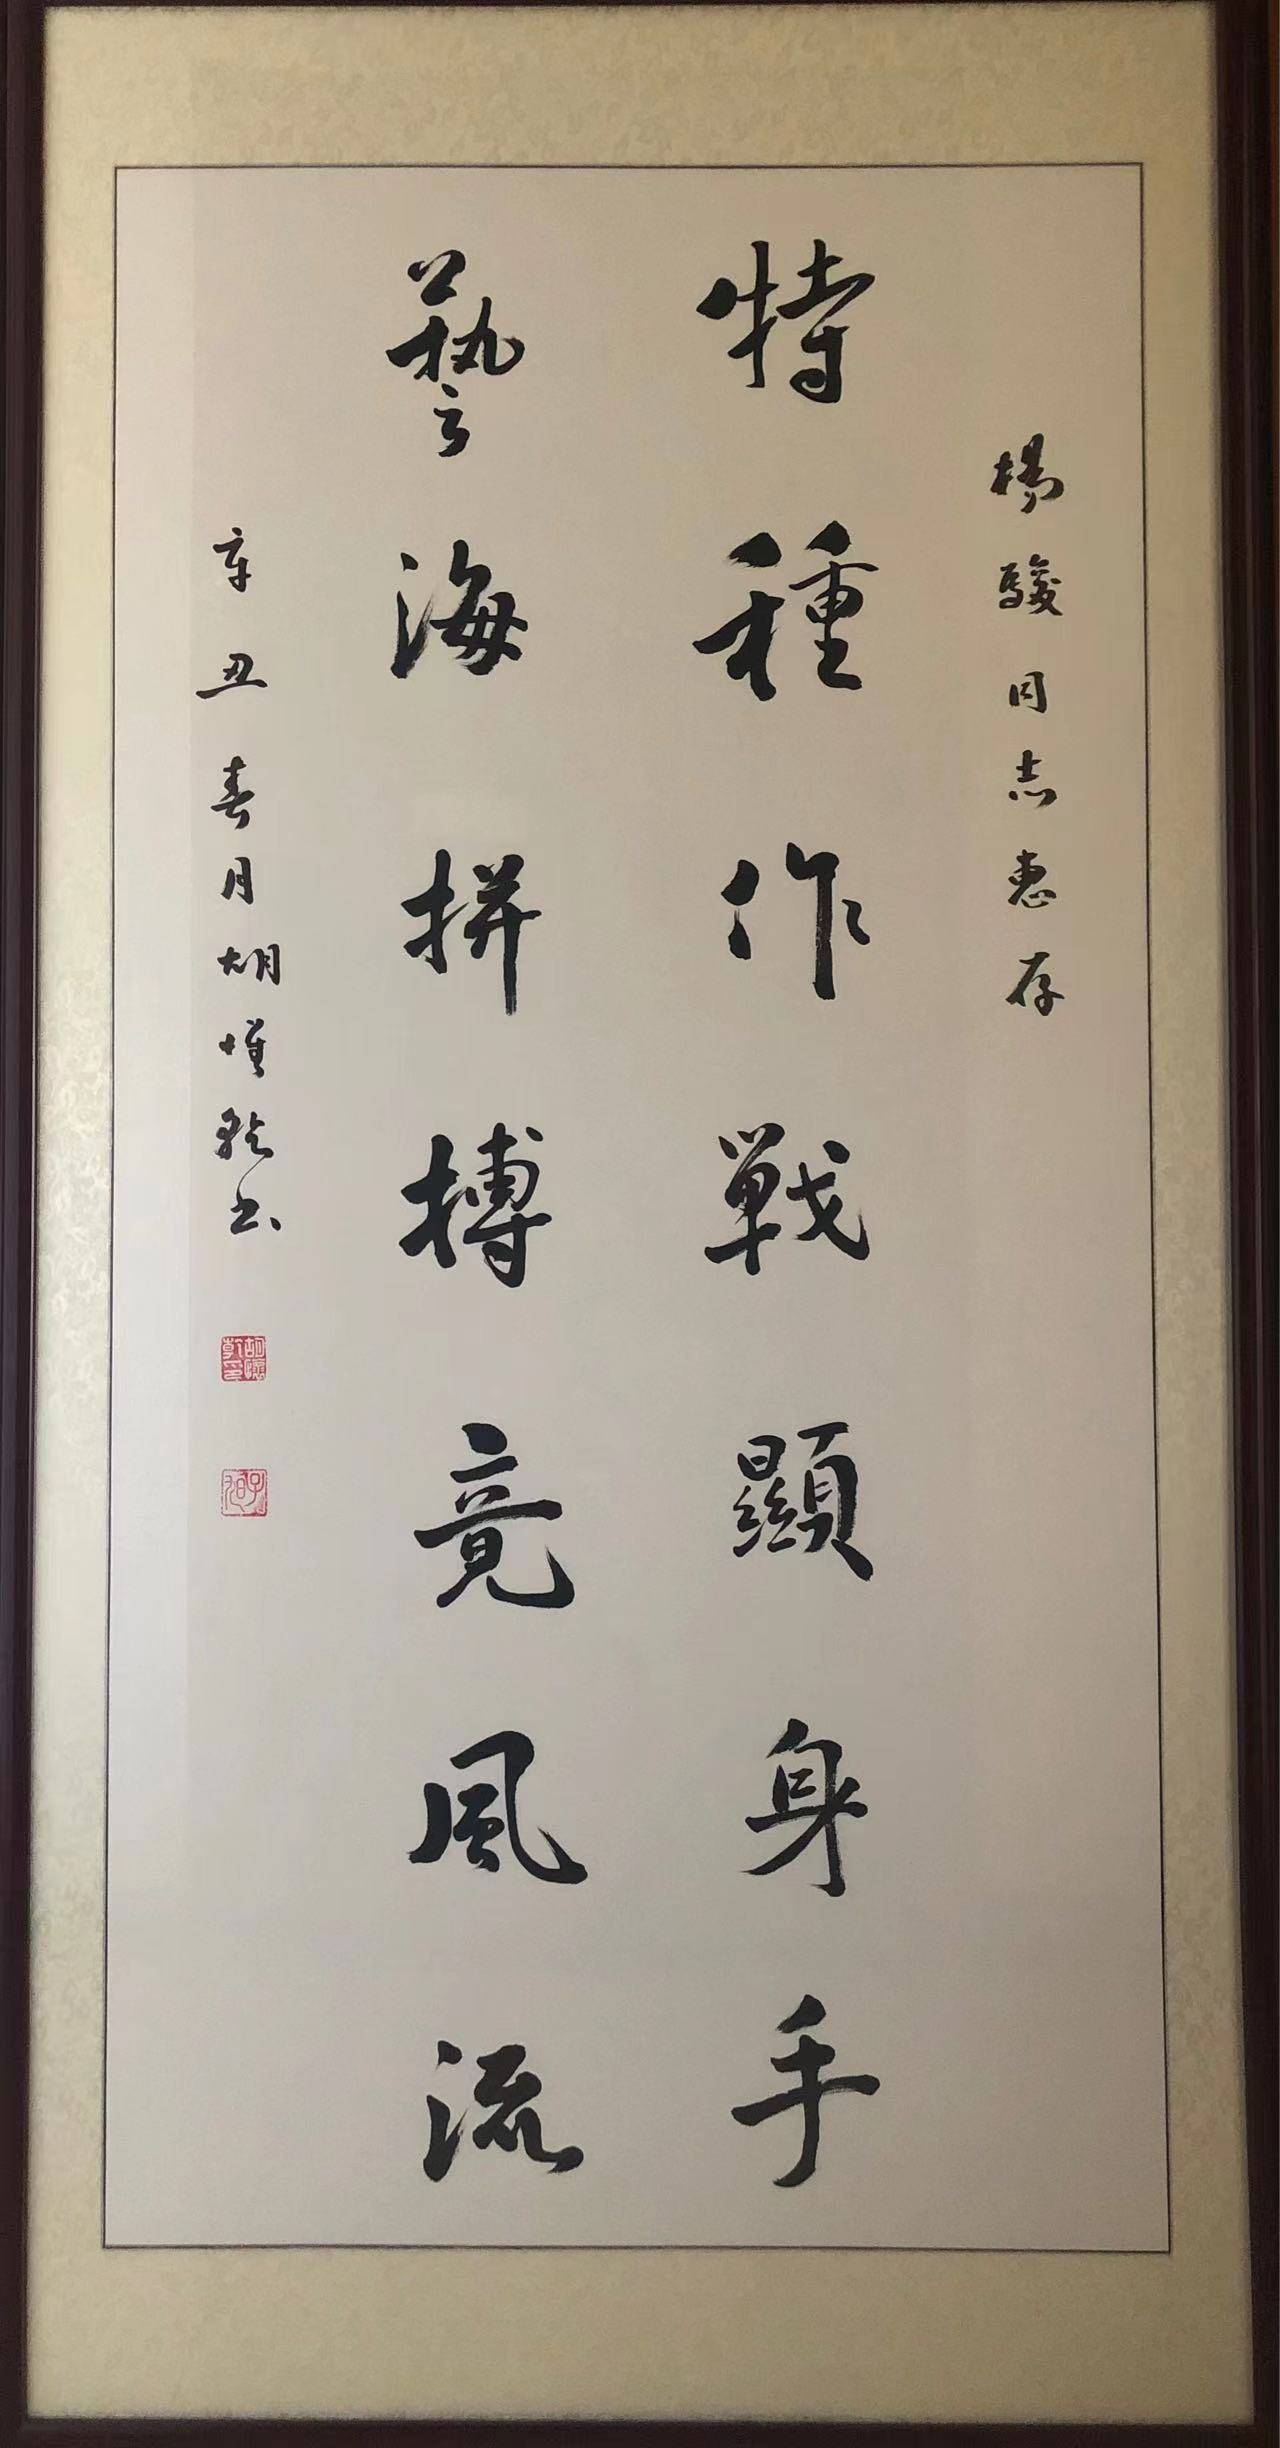 楊駿同志惠存
特種作戰顯身手
藝海拼搏竟風流
辛丑春月胡惟乾书